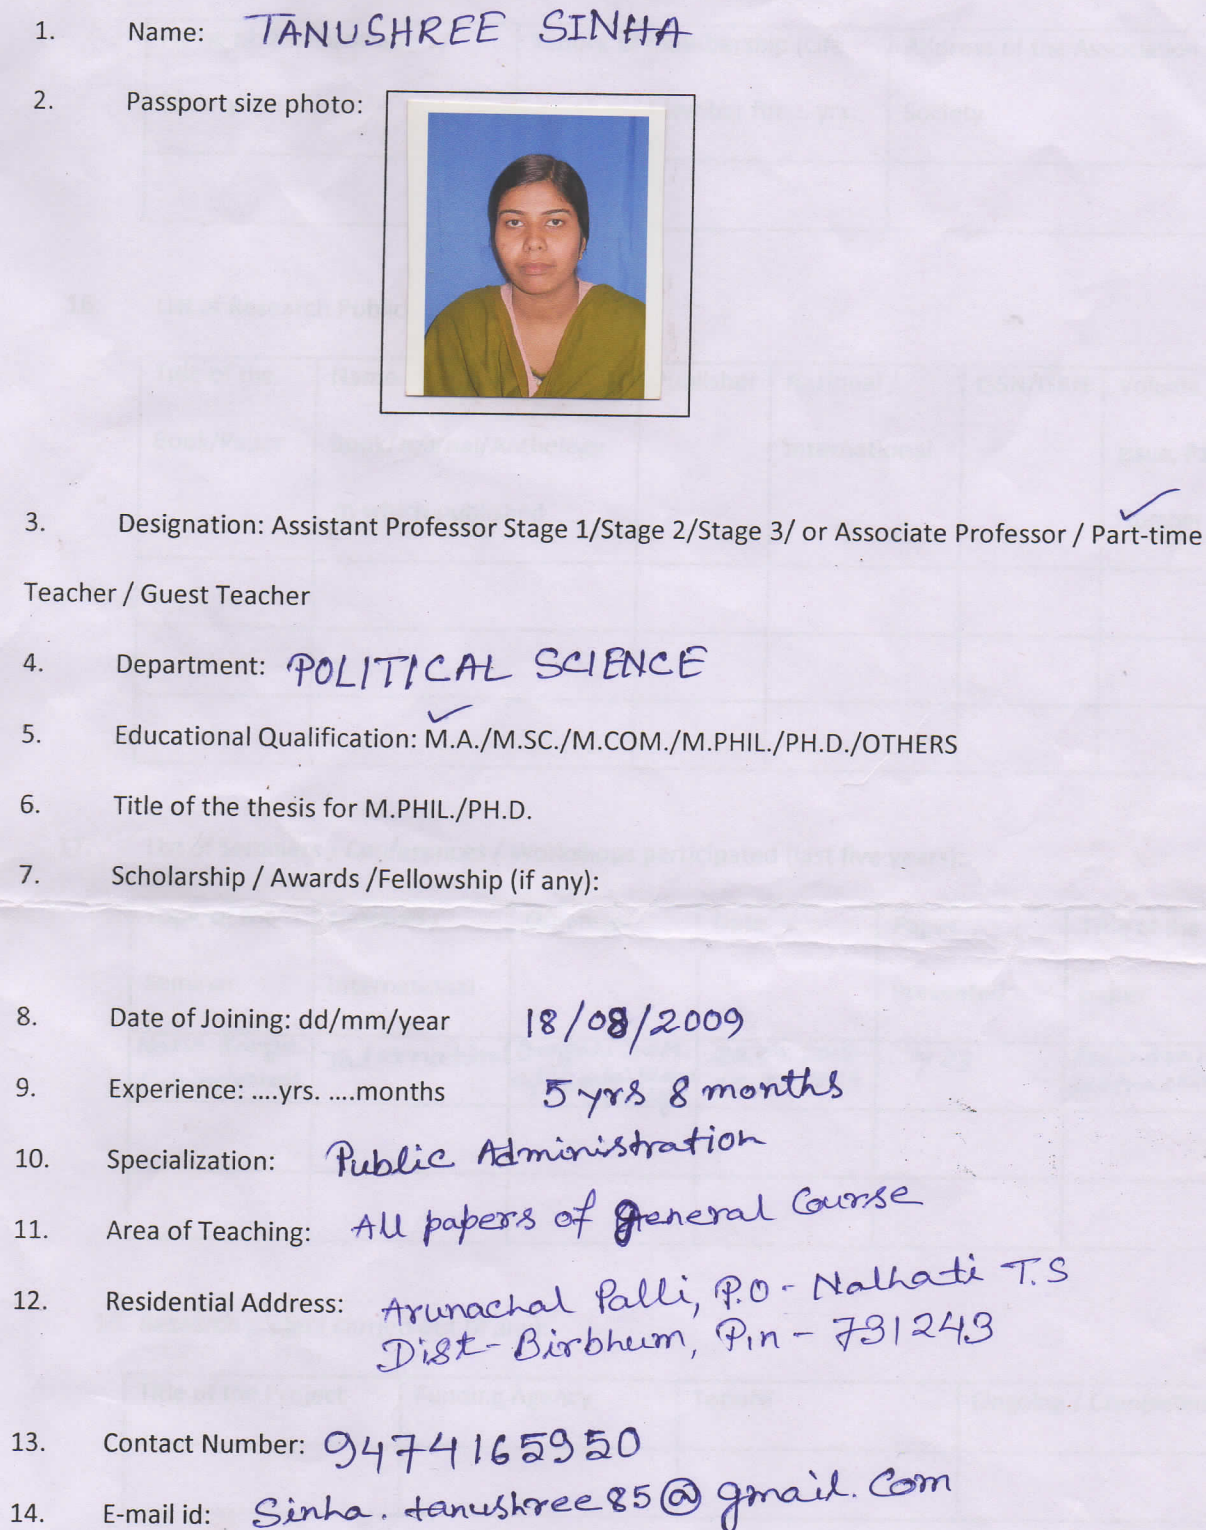 1. Name: TANUSHREE SINHA
2. Passport size photo:
3. Designation: Assistant Professor Stage 1/Stage 2/Stage 3/ or Associate Professor / Part-time
Teacher / Guest Teacher
4. Department: POLITICAL SCIENCE
5. Educational Qualification: M.A./M.SC./M.COM./M.PHIL./PH.D./OTHERS
6. Title of the thesis for M.PHIL./PH.D.
7. Scholarship / Awards /Fellowship (if any):
8. Date of Joining: dd/mm/year 18/08/2009
9. Experience: ....yrs. ....months 5 yrs 8 months
10. Specialization: Public Administration
11. Area of Teaching: All papers of general Course
12. Residential Address: Arunachal Palli, P.O - Nalhati T.S
Dist - Birbhum, Pin - 731243
13. Contact Number: 9474165950
14. E-mail id: Sinha.tanushree85@gmail.com